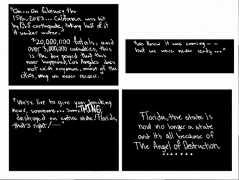 "On... on february the
15th, 2083... California was hit
by 13.5 earthquake, taking half of it
under water.
$20,000,000 fatals, and
over 5,000,000 casualties, this
never happened, Los Angeles does
not exist anymore, most of the
cities, may we never recover."
"We knew it was coming --
but we were never ready..."
"We're live to give you breaking
news, someone... SomeTHING
destroyed an entire state! Florida,
that's right!"
Florida, the state is
now no longer a state
and it's all because of
The Angel of Destruction.